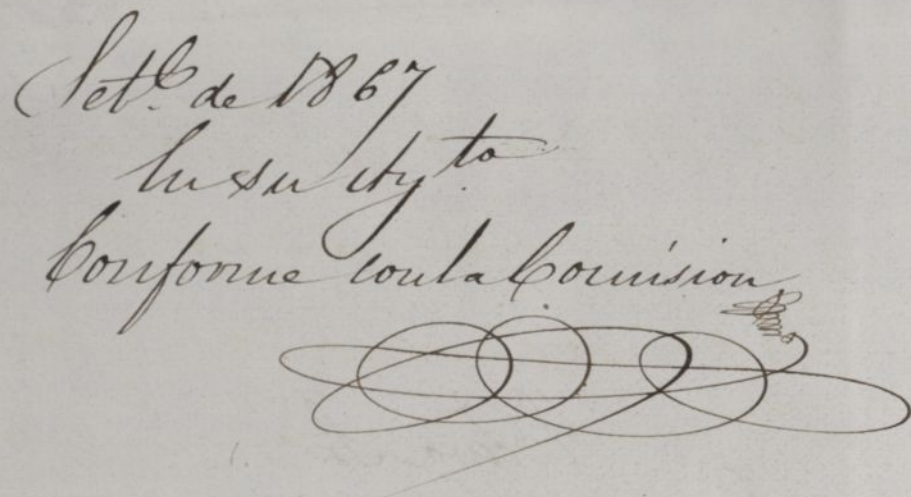 Setbe de 1867
En su Ayto
Conforme con la Comision